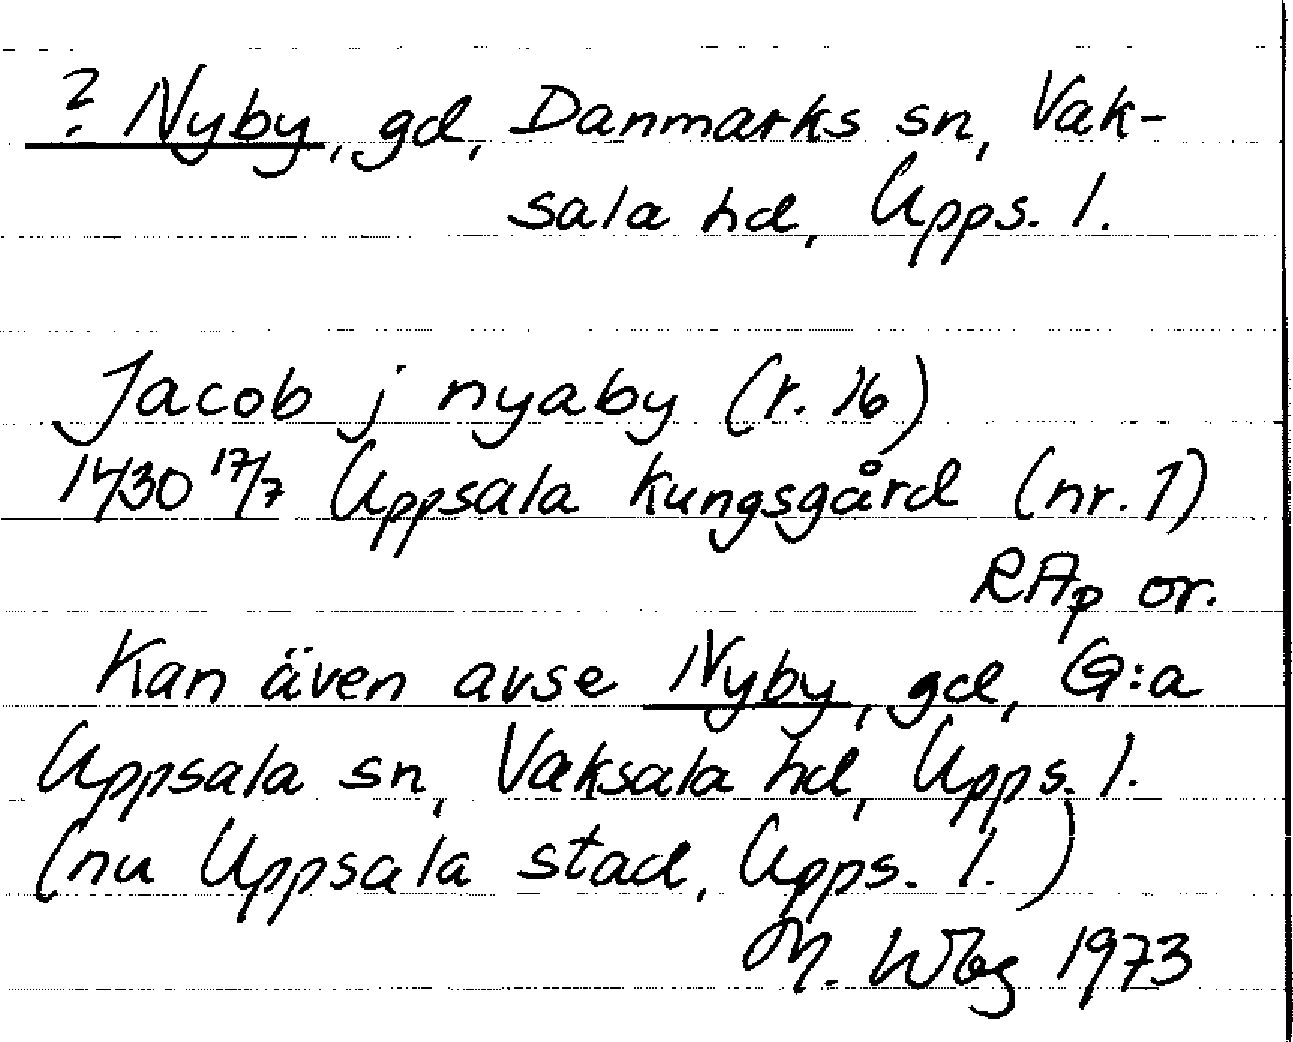 ? Nyby, gd, Danmarks sn, Vak-
sala hd, Upps. l.
Jacob j nyaby (r. 16)
1430 17/7 Uppsala kungsgård (nr. 1)
RAp or.
Kan även avse Nyby, gd, G:a
Uppsala sn, Vaksala hd, Upps. l.
(nu Uppsala stad, Upps. l.)
M. Wbg 1973